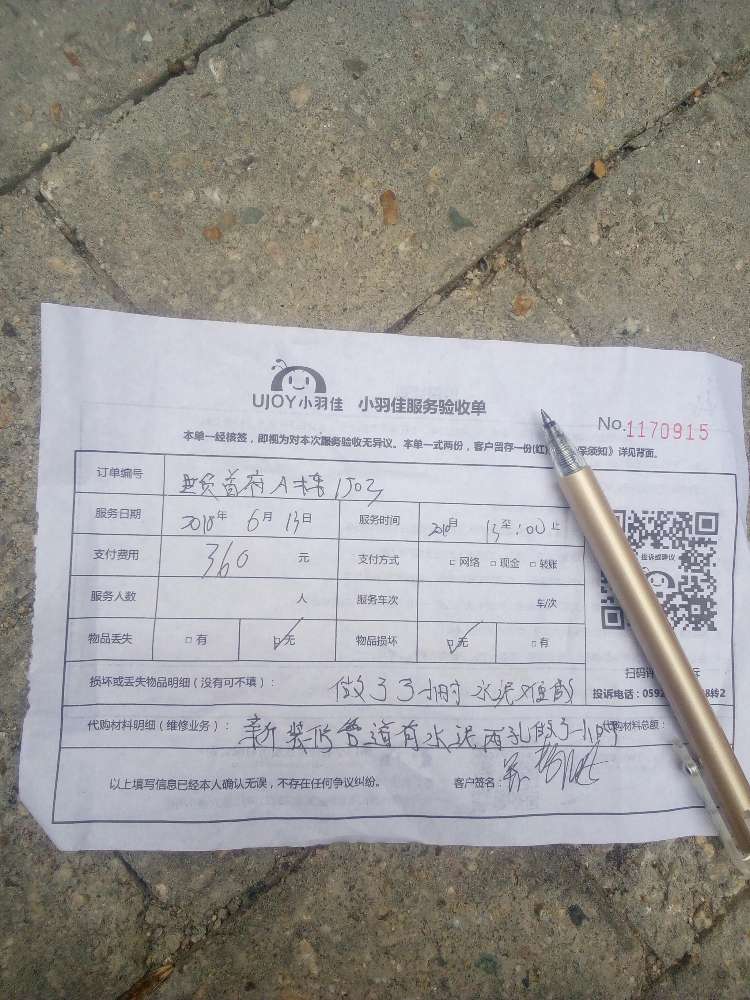 UJOY小羽佳 小羽佳服务验收单
No.1170915
本单一经核签，即视为对本次服务验收无异议。本单一式两份，客户留存一份(红) 保须知》详见背面。
订单编号 首府A栋1503
服务日期 2018年 6月 13日 服务时间 13至:00止
支付费用 360 元 支付方式 □网络 □现金 □转账
投诉或建议
服务人数 人 服务车次 车/次
物品丢失 □有 ☑无 物品损坏 ☑无 □有
扫码
损坏或丢失物品明细（没有可不填）： 做了3小时 水泥
投诉电话：0592 8转2
代购材料明细（维修业务）： 新装修管道有水泥两孔做了 小时 代购材料总额：
以上填写信息已经本人确认无误，不存在任何争议纠纷。 客户签名：